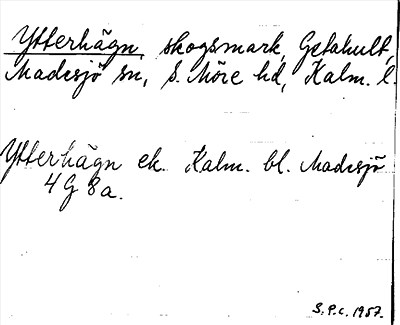 Ytterhägn, skogsmark, Getahult,
Madesjö sn, S. Möre hd, Kalm. l.
Ytterhägn ek. Kalm. bl. Madesjö
4 G 8 a.
S.P.c. 1957.